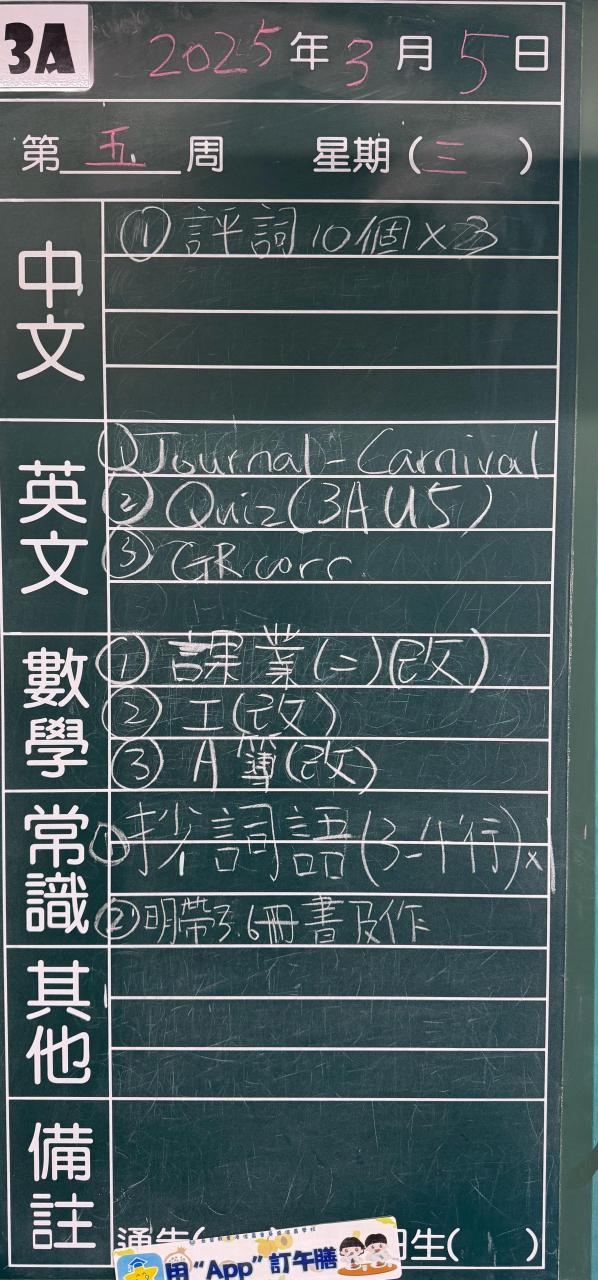 3A 2025年3月5日
第五周 星期(三)
中文
①評詞10個×3
英文
①Journal-Carnival
②Quiz(3A U5)
③GR corr
數學
①課業(二)(改)
②工(改)
③A簿(改)
常識
①抄詞語(3-4行)×1
②明帶3.6冊書及作
其他
備註
通告( 生( )
用“App”訂午膳